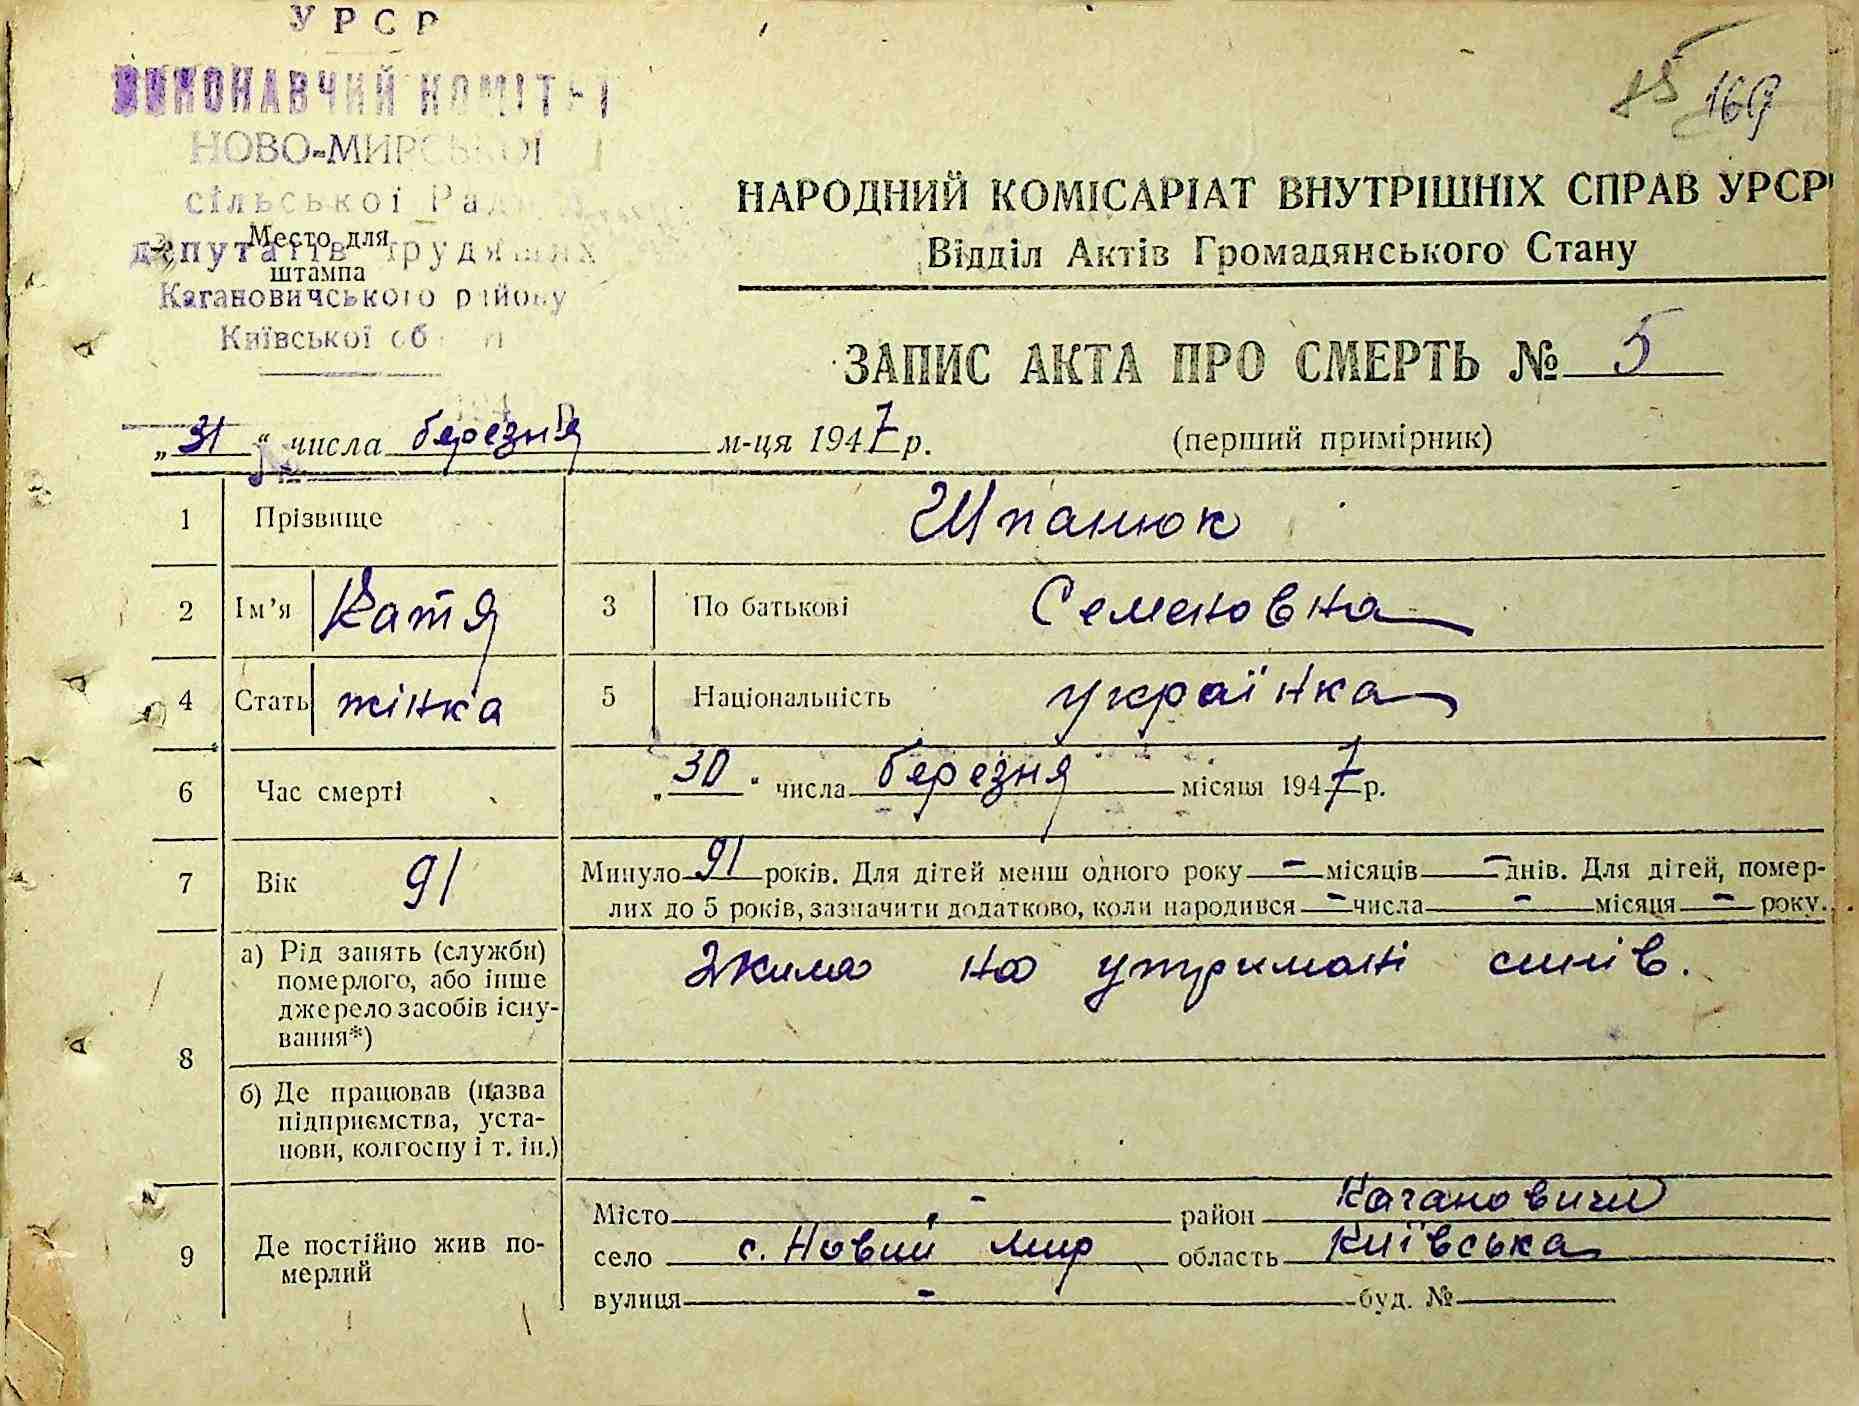 УРСР
ВИКОНАВЧИЙ КОМІТЕТ
НОВО-МИРСЬКОЇ
сільської Ради
депутатів трудящих
Место для
штампа
Кагановичського району
Київської об
15 169
НАРОДНИЙ КОМІСАРІАТ ВНУТРІШНІХ СПРАВ УРСР
Відділ Актів Громадянського Стану
ЗАПИС АКТА ПРО СМЕРТЬ № 5
„31“ числа березня м-ця 1947 р.
(перший примірник)
1 Прізвище Шпанюк
2 Ім'я Катя 3 По батькові Семеновна
4 Стать жінка 5 Національність українка
6 Час смерті „30“ числа березня місяця 1947 р.
7 Вік 91 Минуло 91 років. Для дітей менш одного року — місяців — днів. Для дітей, помер-
лих до 5 років, зазначити додатково, коли народився — числа — місяця — року.
8 а) Рід занять (служби)
померлого, або інше
джерело засобів існу-
вання*)
Жила на утримані синів.
б) Де працював (назва
підприємства, уста-
нови, колгоспу і т. ін.)
9 Де постійно жив по-
мерлий
Місто - район Кагановичи
село с. Новий Мир область Київська
вулиця - буд. №